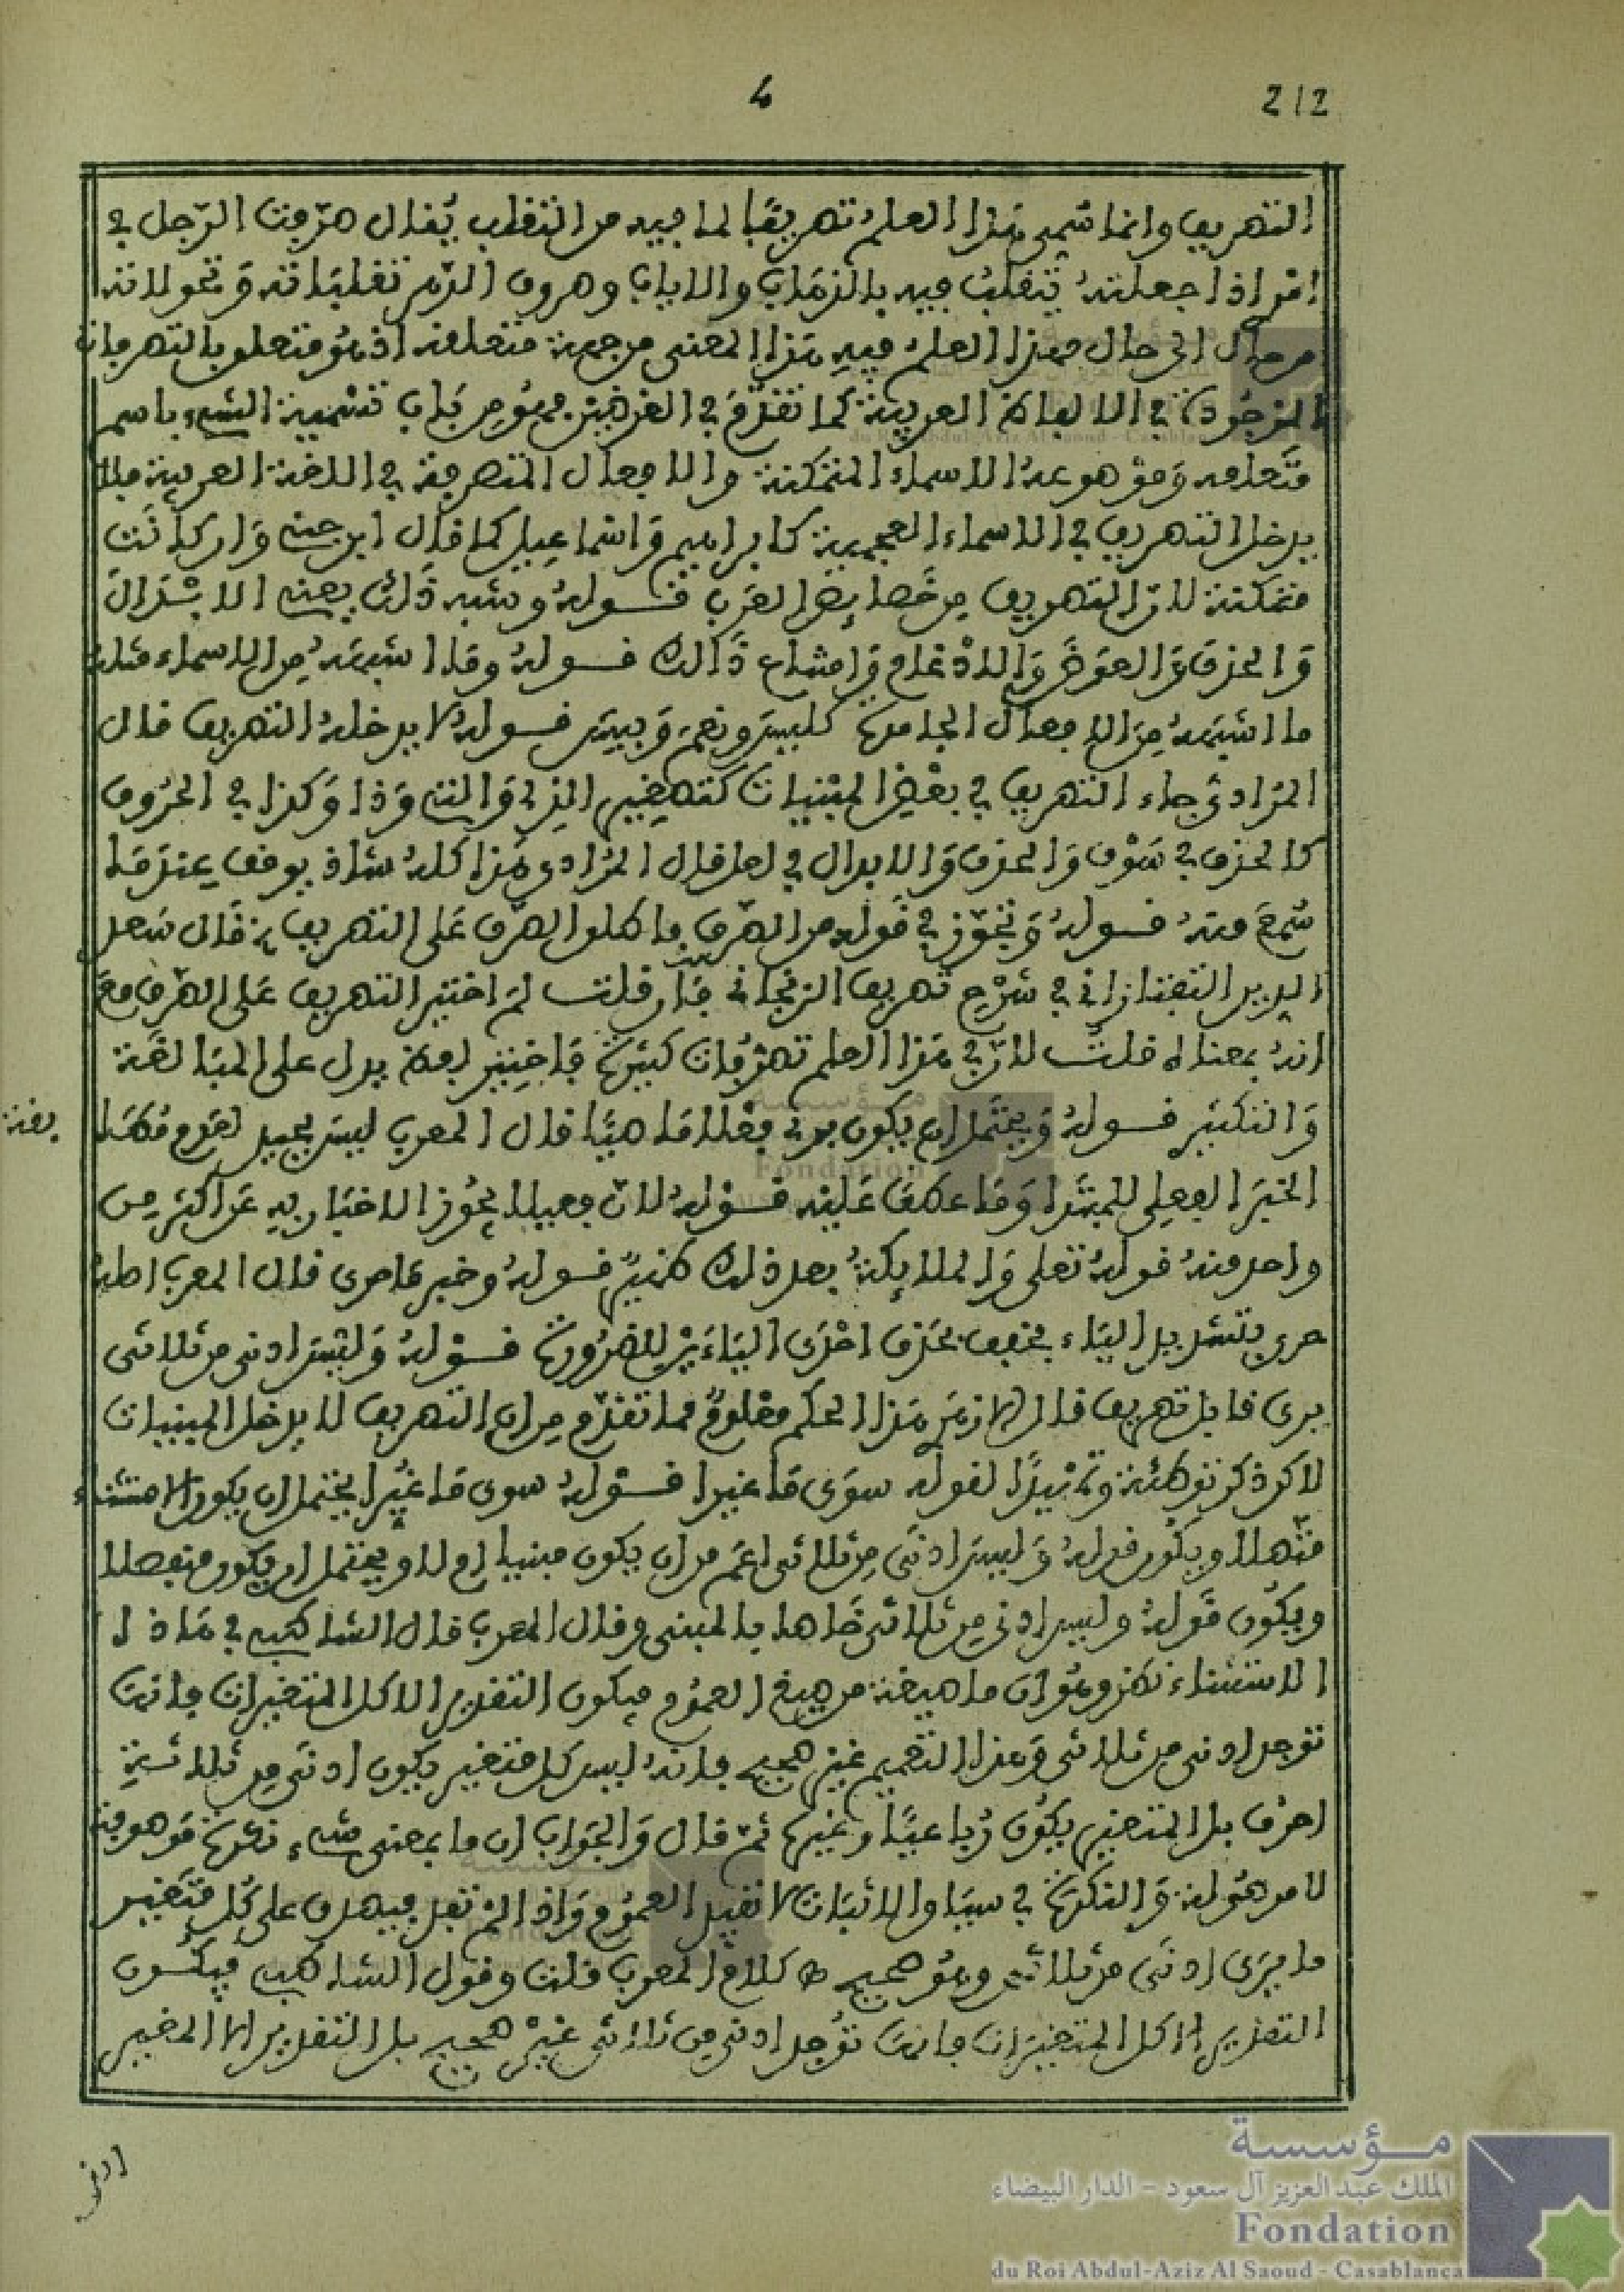 4
212
التصريف وانما سُمِّي هٰذا العلمُ تصريفًا لما فيه من التقلب يُقال صرّفت الرّجل في
امْر اذا جعلتهُ يتقلبُ فيه بالذهاب والاياب وصروف الدّهر تقلباته وتحولاته
من حال الى حال فهذا العلمُ فيه هذا المعنى من جهة متعلقه اذ هُو متعلق بالتصرفات
الموجُودة في الالفاظ العربيّة كما تقدّمَ في الغرضيْن فهُو من بَاب تسْمية الشيء باسم
متَعلقه ومَوْضوعهُ الاسماء المتمكنة والافعال المتصرفة في اللغة العربية فلا
يدخل التصريف في الاسماء العجمية كابراهيم وَاسْماعِيل كما قال ابن جني وَان كانَت
متمكنة لانّ التصريف من خَصايص العَرب قولهُ وشبه ذَلك يعني الابْدَال
وَالحذف وَالعوَض وَالادْغام وَامثاع ذَالك قولهُ وما اشبههُ مِن الاسماء مثلهُ
ما اشبههُ مِن الافعال الجامدة كليسَ ونِعم وَبيسَ قولهُ لا يدخلهُ التصريف قال
المرَادي جاء التصريف في بعْض المبْنيات كتصغير الذِي وَالتي وَذا وَكذا في الحُروف
كالحذف في سَوْف وَالحذف وَالابدال في لعل قال المُرادي وَهٰذا كلهُ شاذ يوقف عِندَ مَا
سُمِعَ منهُ قولهُ وَتجوّز في قَوله من الصّرف فاطلق الصّرف عَلى التصريف قَال سَعد
الدين التفتازاني في شرْح تصريف الزنجاني فَان قلت لم اختير التصريف عَلى الصّرف معَ
انهُ بمعناه قلتُ لانّ في هَذا العلم تصرُّفات كثيرَة فَاختير لفظ يدل على المبَالغَة
وَالتكثير قولهُ وَيحتمَل ان يكون بري فعْلا مَاضيًا قال المعرب ليسَ بجيد لعَدم مُطابقة
الخبَر الفعلي للمبتَدا وَمَا عطفَ عَليْه قوْلهُ لانّ فعيلا يجُوز الاخبَار به عَن اكثر من
واحد منهُ قولهُ تعلى وَالملايكَةُ بعد ذلك ظهيرٌ قولهُ وخبرهما حري قال المعرب اصلهُ
حري بتشديد اليَاء فخفف بحَذف احْدَى اليَاءَيْن للضرُورَة قوْلهُ وَليْسَ ادنى من ثلاثي
يرى قابل تصريف قال الازهَري هَذا الحكم معْلومٌ مما تقدّم مِن ان التصريف لا يدخل المبنيات
لاكن ذكر توطئة وتمْهيدًا لقوله سوَى مَا غيرا قوْلهُ سوى مَا غيّرا يحْتمل ان يكون الاستثناء
متّصلا ويكُون قولهُ وَليسَ ادنَى مِن ثلاثي اعَم من ان يكون مبنيا ام لا ويحتمل ان يكون منفصلا
ويكُون قَولهُ وليس ادنى مِن ثلاثي خَاصا بالمبنى وقال المعرب قال الشاطبي في هَاذا
الاستثناء نظر وهُو ان ما صيغة من صيغ العمُوم فيكون التقدير الا كل المتغيرات فانت
توجد ادنى من ثلاثي وَهذا التعميم غيْر صحيح فانهُ ليس كل متغير يكون ادنَى مِن ثلاثة
احرُف بل المتغير يكُون رُباعيًّا وغيْرها ثمّ قال وَالجَواب ان ما بمعنى شيء نكرَة مَوصوفة
لا موصُولة وَالنكرَة في سيَاق الاثبَات لا تقبل العمُوم وَاذا لمْ تقبل فيصدق على كُل متَغير
ما يرَى ادنَى من ثلاثي وهُو صحيح ط كلام المعرب قلت وقول الشاطبي فيكُون
التقدير الا كل المتغيرَات فانت توُجد ادنى من ثلاثي غيْر صحيح بل التقدير الا المغير
ادنى
مؤسسة
الملك عبد العزيز آل سعود - الدار البيضاء
Fondation
du Roi Abdul-Aziz Al Saoud - Casablanca